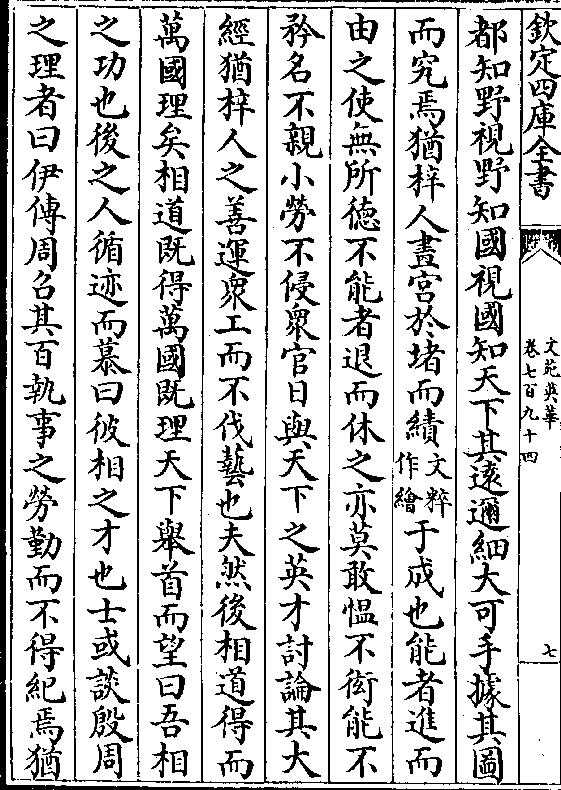 欽定四庫全書
文苑英華
卷七百九十四
七
都知野視野知國視國知天下其逺邇細大可手據其圖
而究焉猶梓人畫宮於堵而績文粹作繪于成也能者進而
由之使無所徳不能者退而休之亦莫敢愠不衒能不
矜名不親小勞不侵衆官日與天下之英才討論其大
經猶梓人之善運衆工而不伐藝也夫然後相道得而
萬國理矣相道既得萬國既理天下舉首而望曰吾相
之功也後之人循迹而慕曰彼相之才也士或談殷周
之理者曰伊傅周召其百執事之勞勤而不得紀焉猶